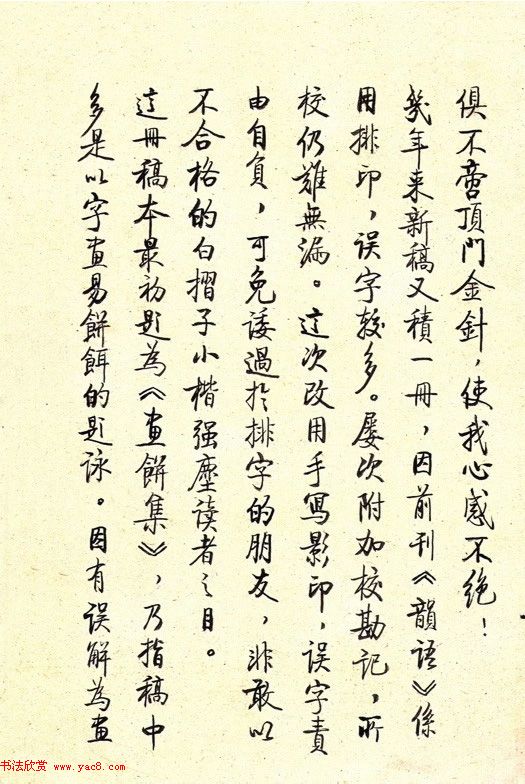 俱不啻頂門金針，使我心感不絕！
幾年来新稿又積一冊，因前刊《韻語》係
用排印，误字較多。屡次附加校勘记，所
校仍難無漏。这次改用手寫影印，误字責
由自負，可免诿過於排字的朋友，非敢以
不合格的白摺子小楷强塵读者之目。
这冊稿本最初題為《畫餅集》，乃指稿中
多是以字畫易餅餌的題詠。因有误解為畫
书法欣赏 www.yac8.com